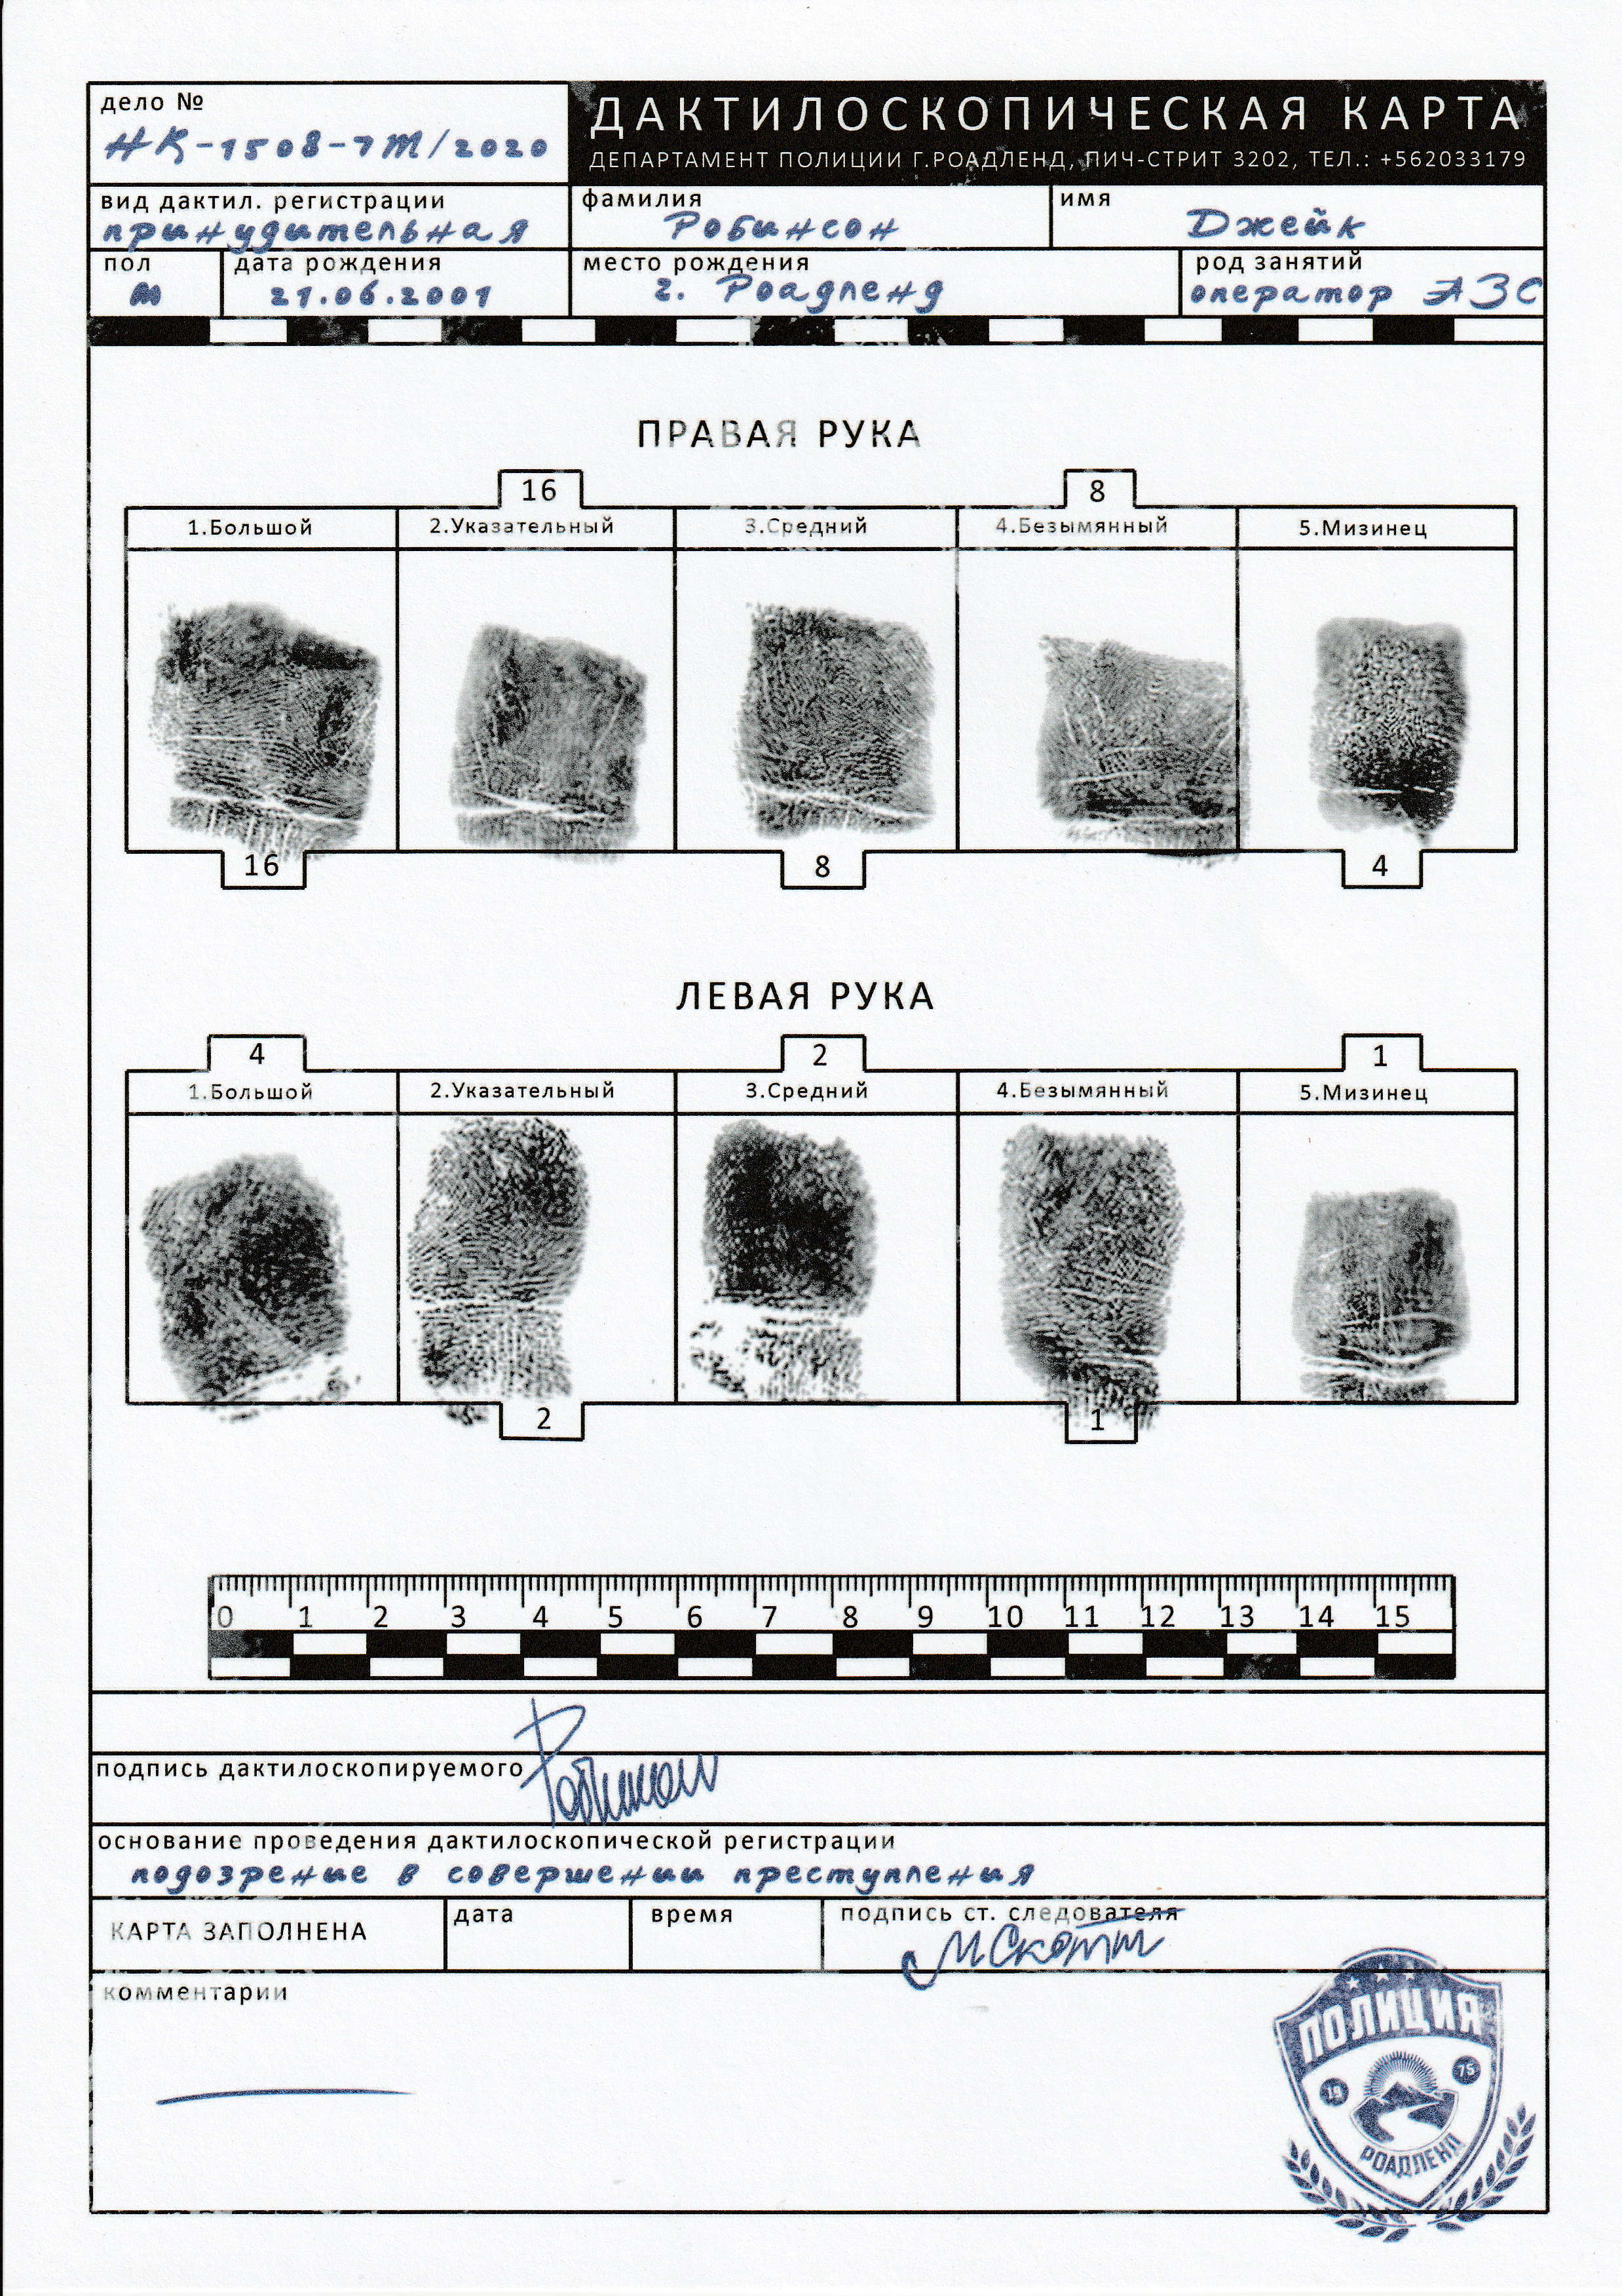 дело №
НК-1508-7М/2020
ДАКТИЛОСКОПИЧЕСКАЯ КАРТА
ДЕПАРТАМЕНТ ПОЛИЦИИ Г.РОАДЛЕНД, ПИЧ-СТРИТ 3202, ТЕЛ.: +562033179
вид дактил. регистрации
принудительная
фамилия
Робинсон
имя
Джейк
пол
м
дата рождения
21.06.2001
место рождения
г. Роадленд
род занятий
оператор АЗС
ПРАВАЯ РУКА
16 8
1.Большой 2.Указательный 3.Средний 4.Безымянный 5.Мизинец
16 8 4
ЛЕВАЯ РУКА
4 2 1
1.Большой 2.Указательный 3.Средний 4.Безымянный 5.Мизинец
2 1
0 1 2 3 4 5 6 7 8 9 10 11 12 13 14 15
подпись дактилоскопируемого
Робинсон
основание проведения дактилоскопической регистрации
подозрение в совершении преступления
КАРТА ЗАПОЛНЕНА
дата
время
подпись ст. следователя
МСкотт
комментарии
ПОЛИЦИЯ
19 75
РОАДЛЕНД